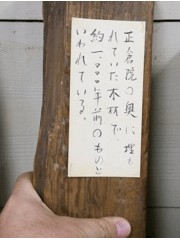 正倉院の奥に埋も
れていた木材で、
約一、〇〇〇年前のものと
いわれている。